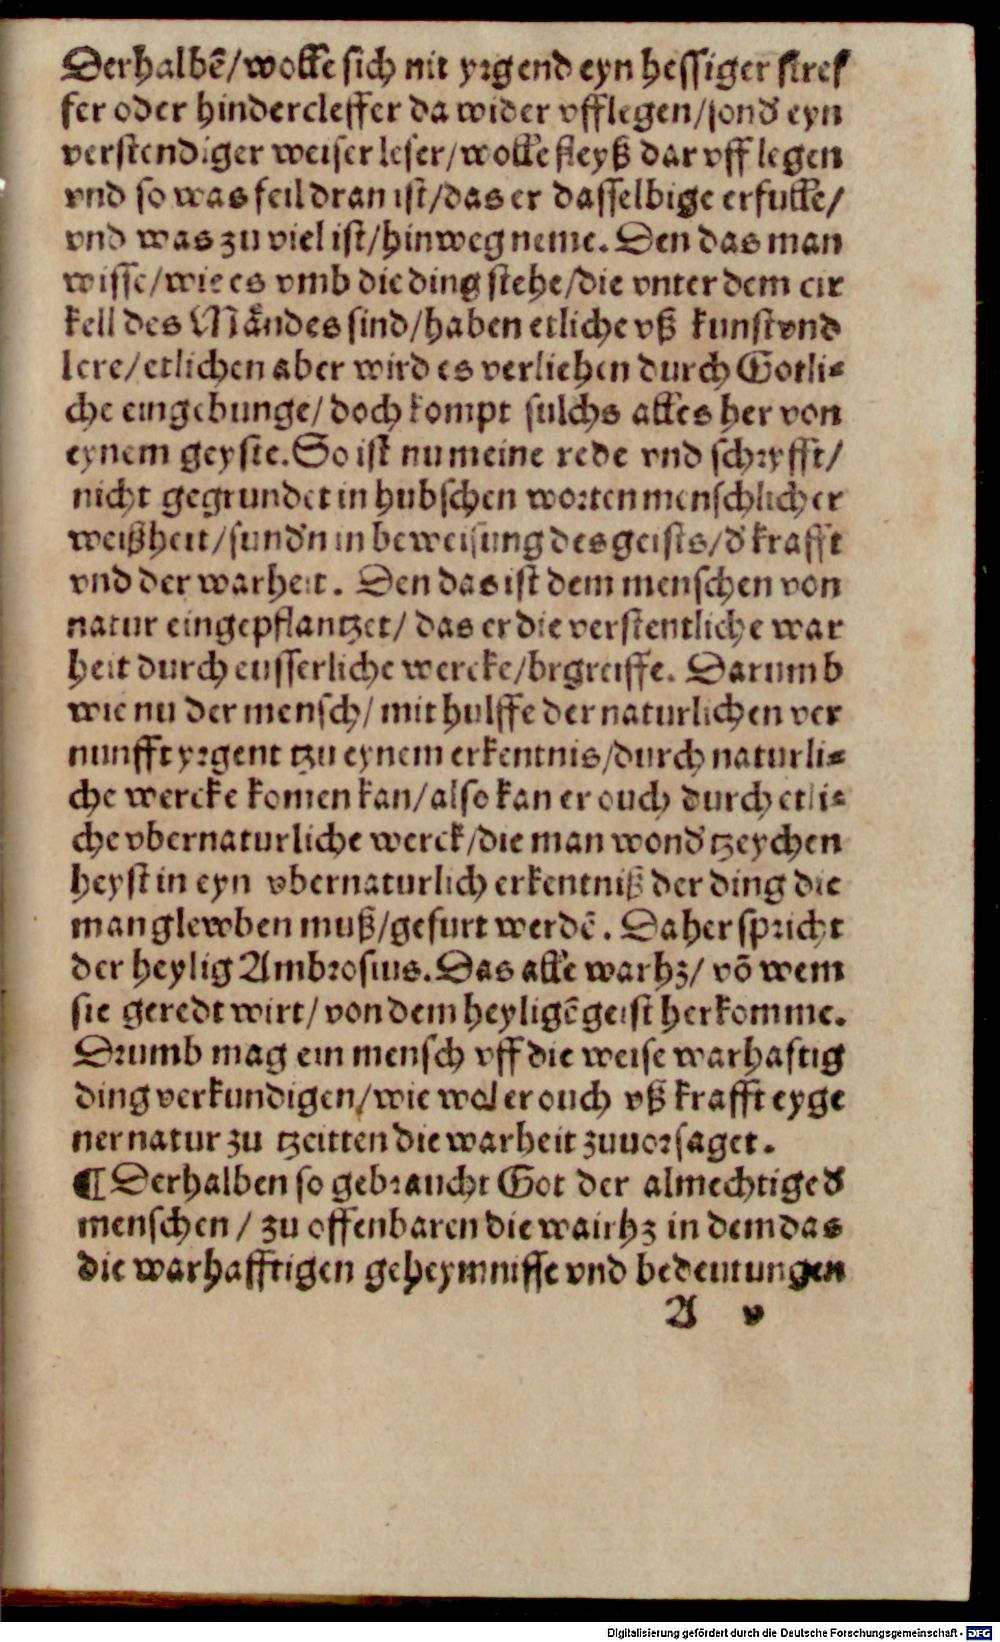 Derhalbẽ/wolle sich nit yrgend eyn hessiger stref
fer oder hindercleffer da wider vfflegen/sond' eyn
verstendiger weiser leser/wolle fleyß dar vff legen
vnd so was feil dran ist/das er dasselbige erfulle/
vnd was zu viel ist/hinweg neme. Den das man
wisse/wie es vmb die ding stehe/die vnter dem cir
kell des Mandes sind/haben etliche vß kunst vnd
lere/etlichen aber wird es verliehen durch Gotli⸗
che eingebunge/doch kompt sulchs alles her von
eynem geyste. So ist nu meine rede vnd schryfft/
nicht gegrundet in hubschen worten menschlicher
weißheit/sund'n in beweisung des geists/d' krafft
vnd der warheit. Den das ist dem menschen von
natur eingepflantzet/das er die verstentliche war
heit durch eusserliche wercke/brgreiffe. Darumb
wie nu der mensch/mit hulffe der naturlichen ver
nunfft yrgent tzu eynem erkentnis/durch naturli⸗
che wercke komen kan/also kan er ouch durch etli⸗
che vbernaturliche werck/die man wond'tzeychen
heyst in eyn vbernaturlich erkentniß der ding die
man glewben muß/gefurt werdẽ. Daher spricht
der heylig Ambrosius. Das alle warhz/võ wem
sie geredt wirt/von dem heyligẽ geist herkomme.
Drumb mag ein mensch vff die weise warhaftig
ding verkundigen/wie wol er ouch vß krafft eyge
ner natur zu tzeitten die warheit zuuorsaget.
¶ Derhalben so gebraucht Got der almechtige d'
menschen/zu offenbaren die wairhz in dem das
die warhafftigen geheymnisse vnd bedeutungen
A v
Digitalisierung gefördert durch die Deutsche Forschungsgemeinschaft - DFG